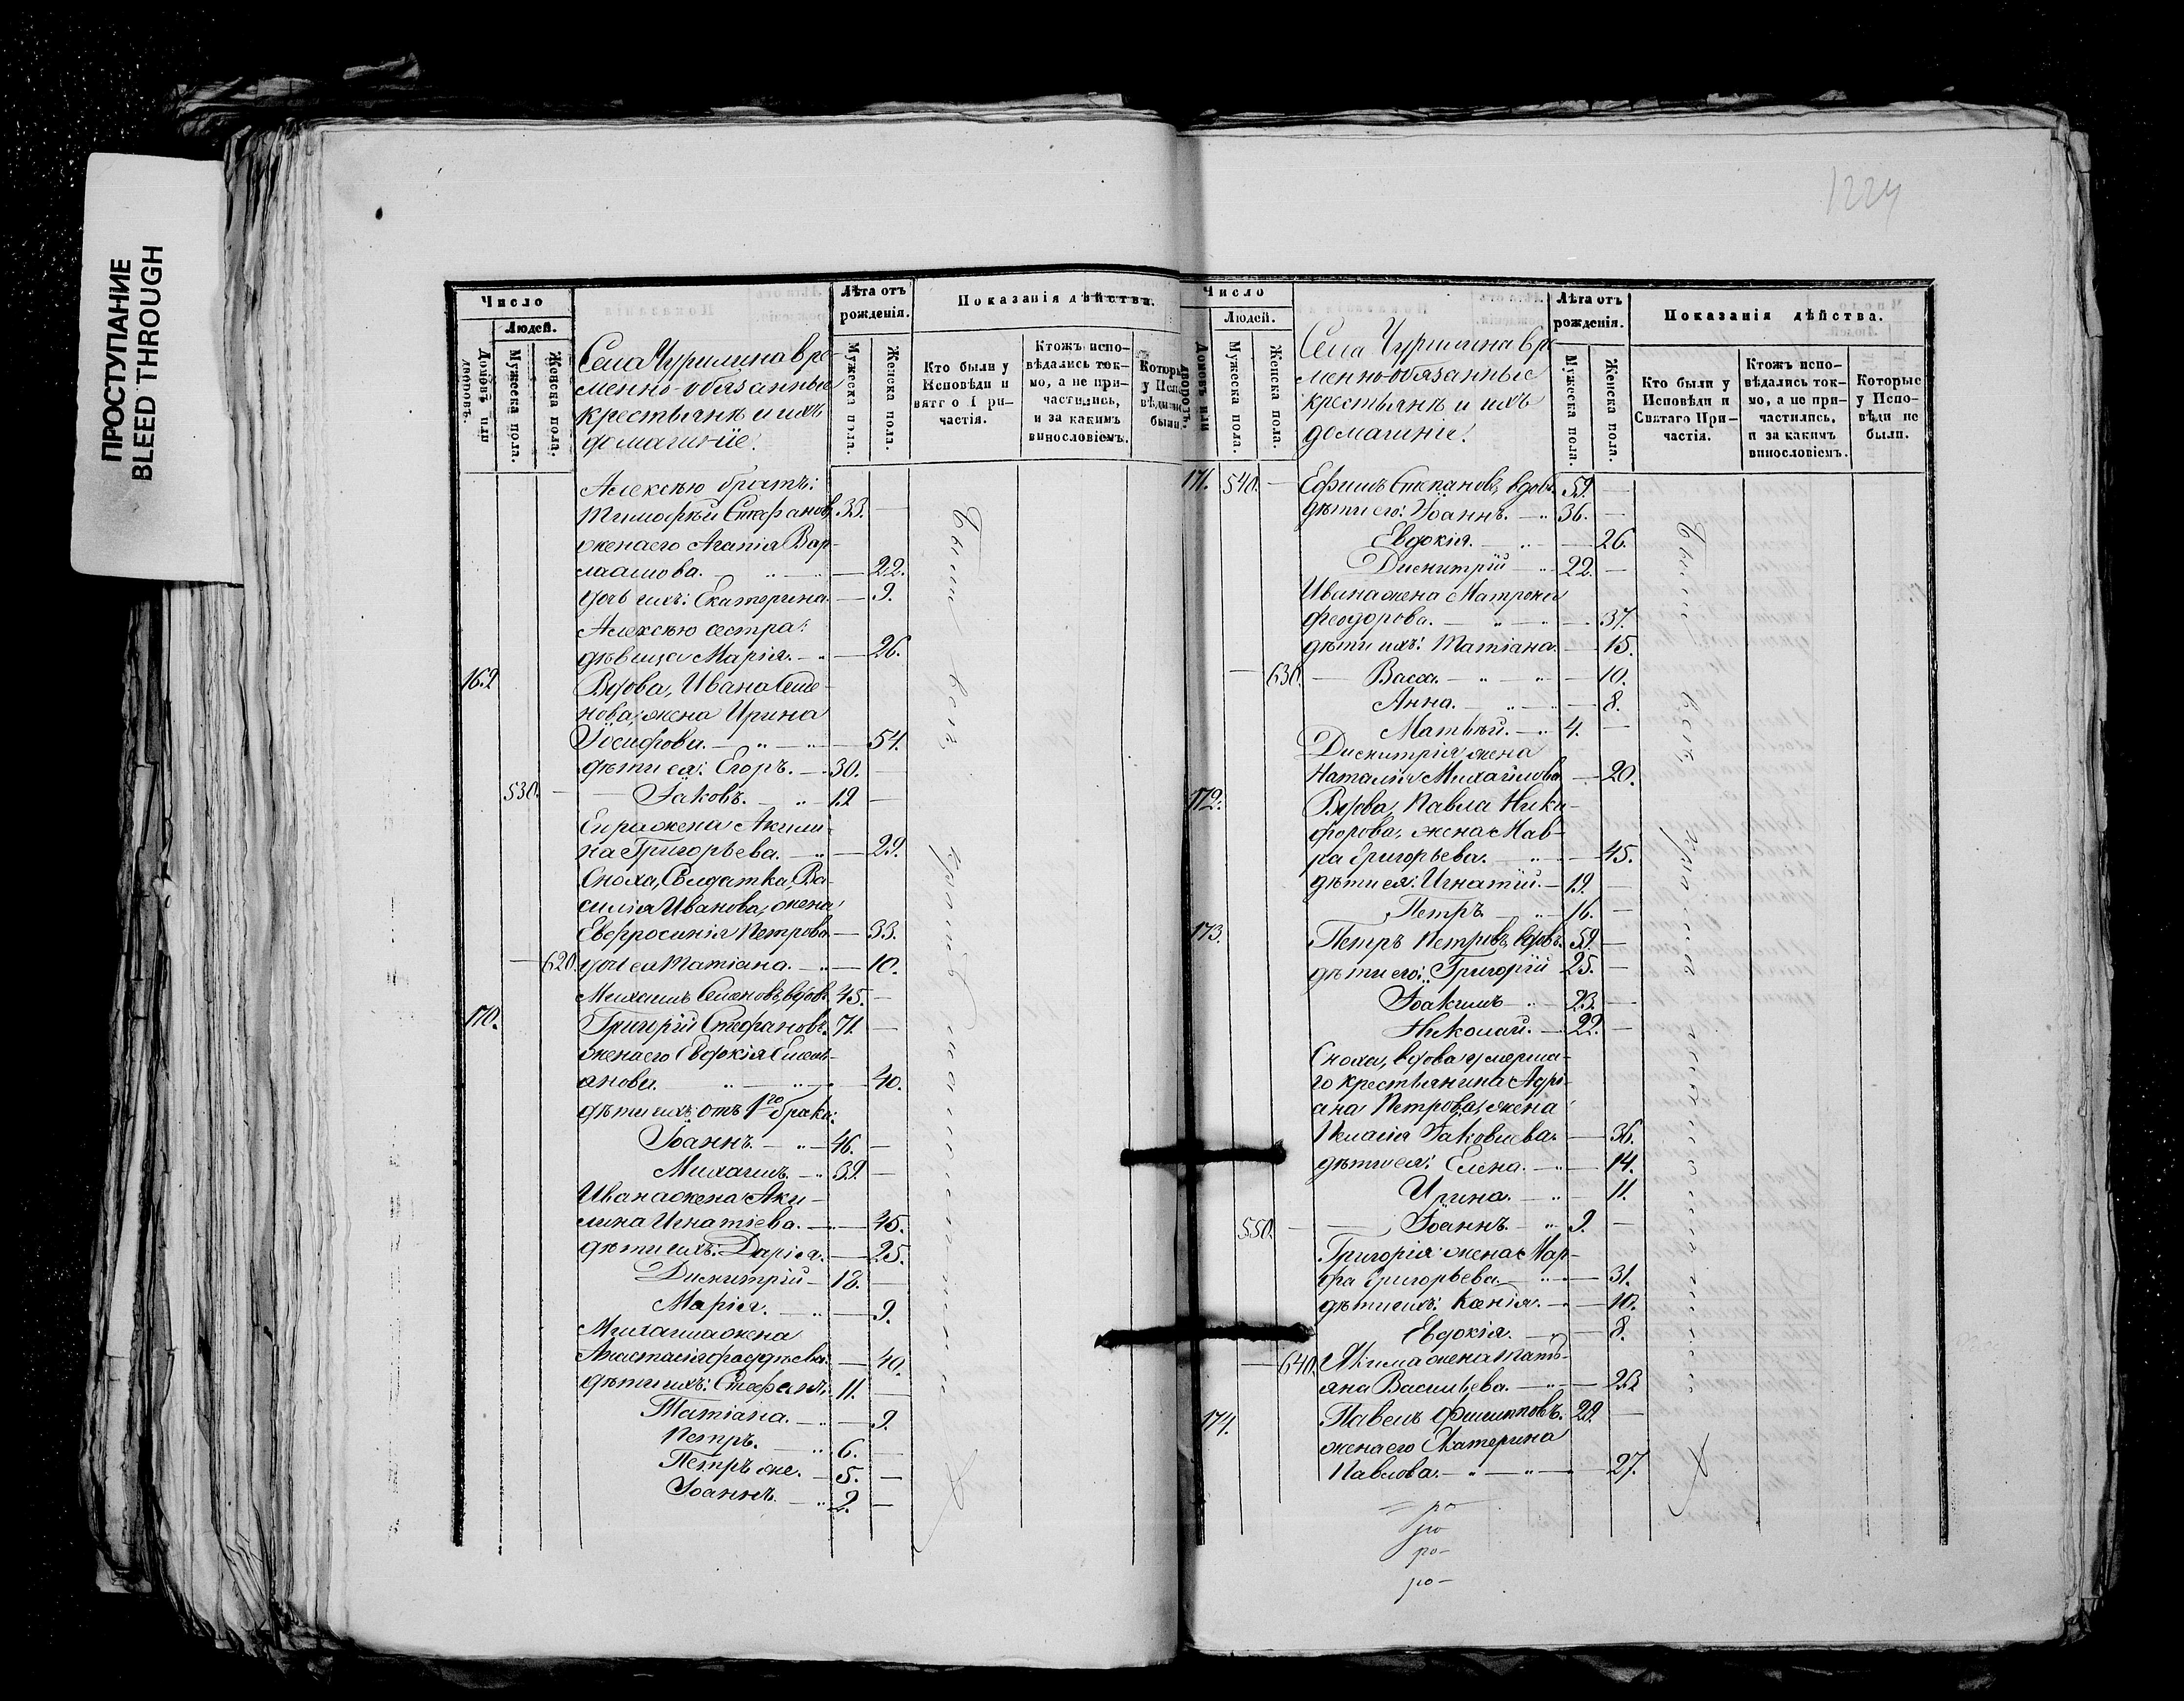 ПРОСТУПАНИЕ
BLEED THROUGH
1224
Число
Людей.
Домовъ или дворовъ.
Мужеска пола.
Женска пола.
Села Чурилина вре-
менно-обязанные
крестьянѣ и ихъ
домашніе.
Лѣта отъ
рожденія.
Мужеска пола.
Женска пола.
Показанія дѣйства.
Кто были у
Исповѣди и
Святаго При-
частія.
Ктожъ испо-
вѣдались ток-
мо, а не при-
частились,
и за какимъ
винословіемъ.
Которые
у Испо-
вѣди не
были.
Алексѣю братъ:
Тимофѣй Стефановъ 33. —
жена его Агапія Вар-
лаамова. — 22.
дочь ихъ: Екатерина. — 9.
Алексѣю сестра:
дѣвица Марія. — 26.
169 Вдова, Ивана Семе-
нова, жена Ирина
Іосифова. — 54.
дѣти ея: Егоръ. 30. —
530. — Іаковъ. 19 —
Егора жена Акили-
на Григорьева. — 29.
Сноха, Солдатка, Ва-
силія Иванова, жена
Евфросинія Петрова — 33.
— 620. дочь ея Татіана. — 10.
Михаилъ Семеновъ, вдовъ 45. —
170. Григорій Стефановъ. 71 —
жена его Евдокія Емель-
янова. — 40.
дѣти ихъ отъ 1го брака:
Іоаннъ. 46. —
Михаилъ. 39. —
Ивана жена Аки-
лина Игнатіева. — 45.
дѣти ихъ: Дарія. — 25.
Димитрій 18. —
Марія. — 9.
Михаила жена
Анастасія Фаддѣева. — 40.
дѣти ихъ: Стефанъ. 11. —
Татіана. — 9.
Петръ. 6. —
Петръ же. 5. —
Іоаннъ. 2. —
Были всѣ
Число
Людей.
Домовъ или дворовъ.
Мужеска пола.
Женска пола.
Села Чурилина вре-
менно-обязанные
крестьянѣ и ихъ
домашніе.
Лѣта отъ
рожденія.
Мужеска пола.
Женска пола.
Показанія дѣйства.
Кто были у
Исповѣди и
Святаго При-
частія.
Ктожъ испо-
вѣдались ток-
мо, а не при-
частились,
и за какимъ
винословіемъ.
Которые
у Испо-
вѣди не
были.
171. 540. — Ефимъ Степановъ, вдовъ. 59. —
дѣти его: Іоаннъ. 36. —
Евдокія. — 26.
Димитрій 22. —
Ивана жена Матрона
Феодорова. — 37.
дѣти ихъ: Татіана. — 15.
— 630. Васса. — 10.
Анна. — 8.
Матвѣй. 4. —
Димитрія жена
Наталія Михайлова — 20.
172. Вдова, Павла Ники-
форова, жена Мав-
ра Григорьева. — 45.
дѣти ея: Игнатій. 19. —
Петръ 16. —
173. Петръ Петровъ, вдовъ. 59. —
дѣти его: Григорій 25. —
Іоакимъ 23. —
Николай. 22. —
Сноха, вдова умерша-
го крестьянина Адрі-
ана Петрова, жена
Пелагія Іаковлева. — 36.
дѣти ея: Елена. — 14.
Ирина. — 11.
550. — Іоаннъ. 9. —
Григорія жена Мар-
фа Григорьева. — 31.
дѣти ихъ: Ксенія. — 10.
Евдокія. — 8.
— 640. Якима жена Тать-
яна Васильева. — 23
174. Павелъ Филипповъ. 29. —
жена его Екатерина
Павлова. — 27.
Были всѣ